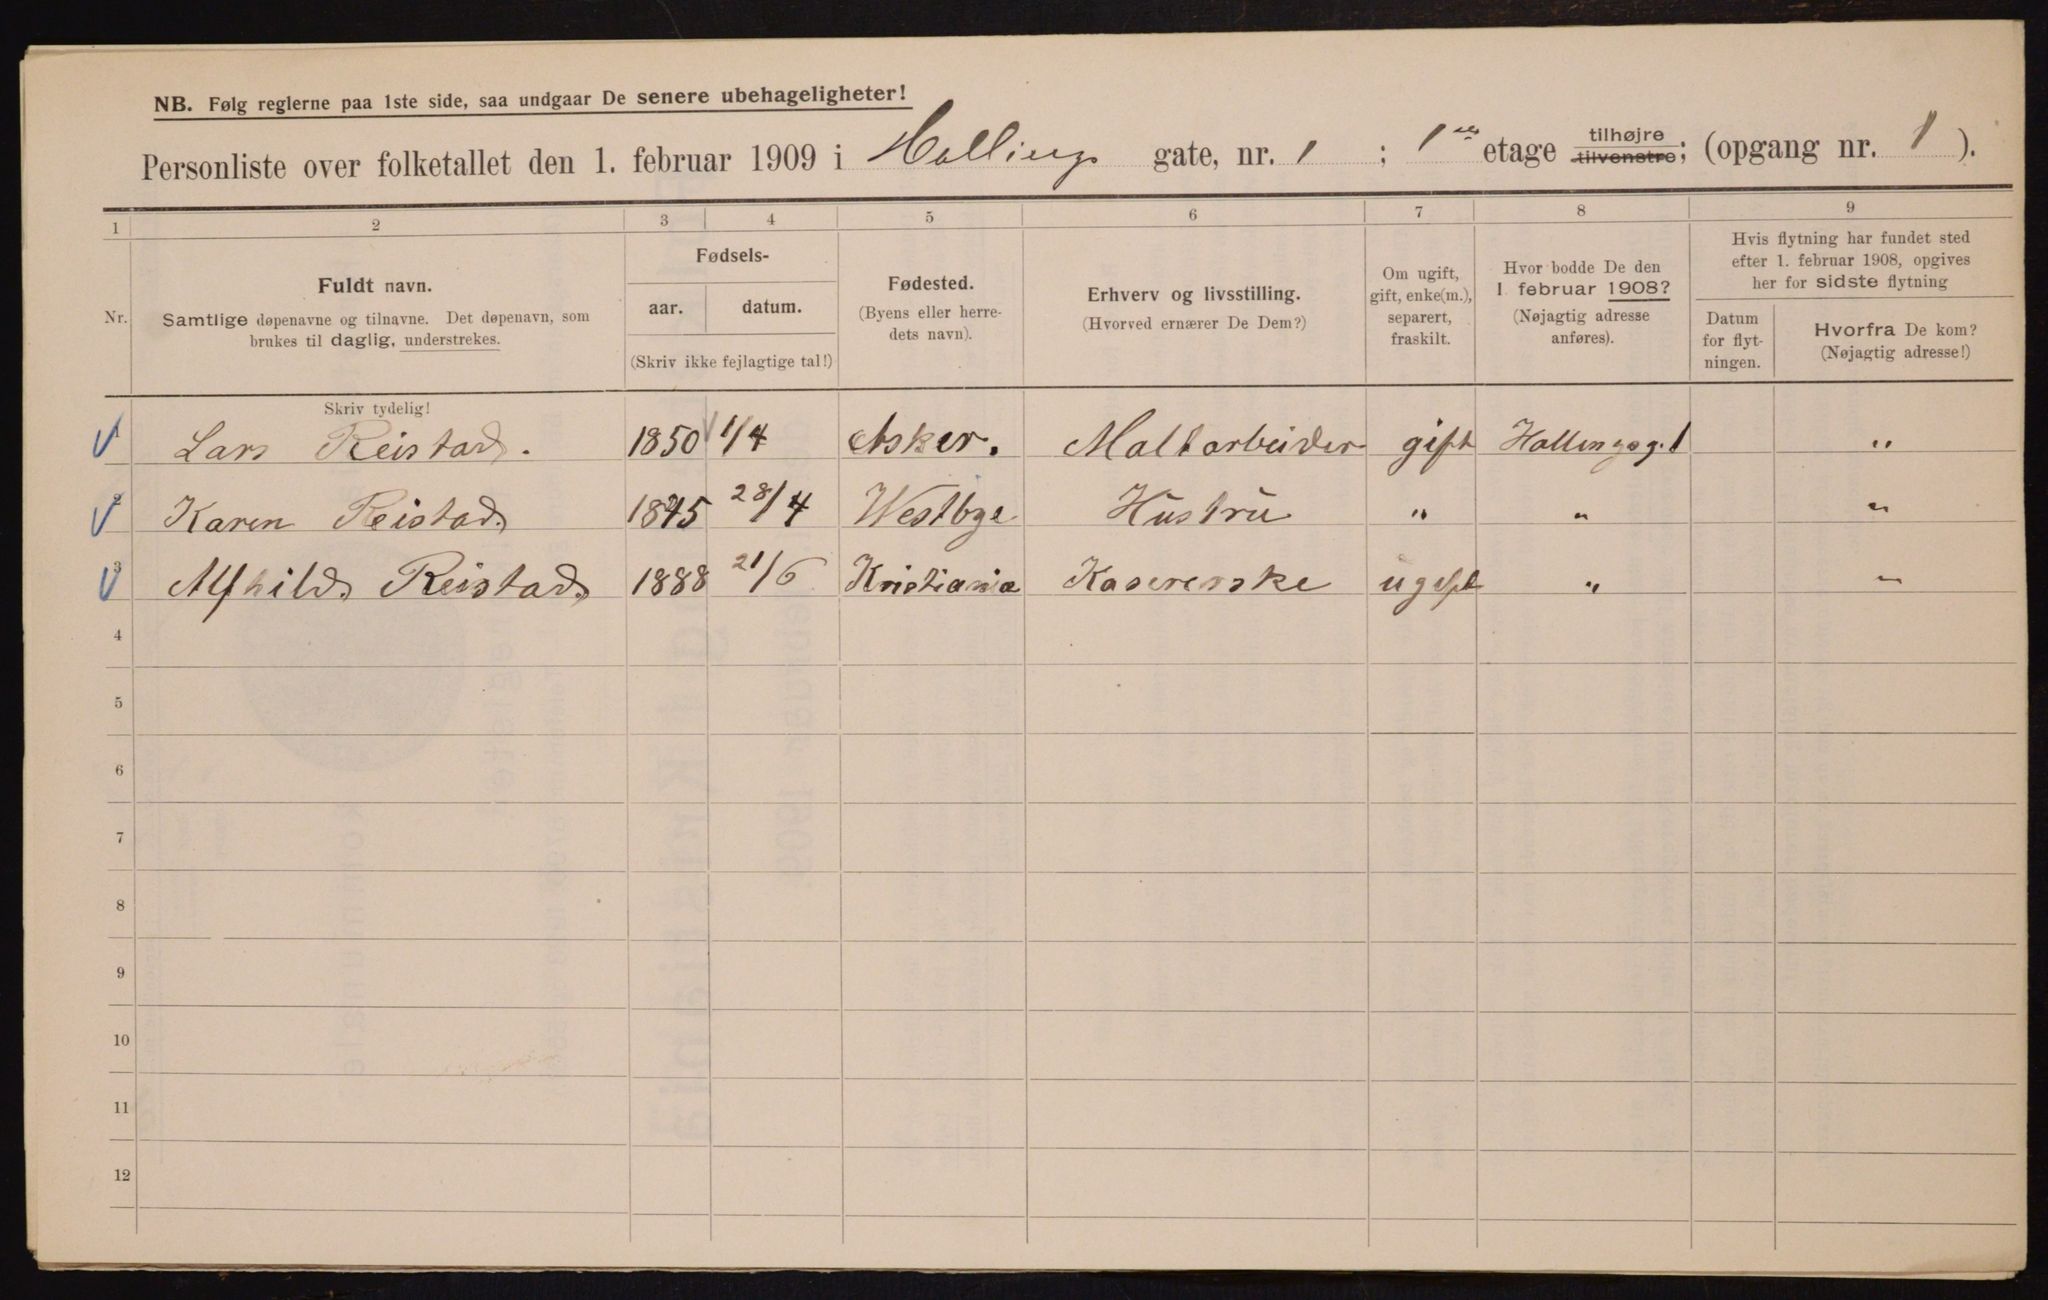 NB. Følg reglerne paa 1ste side, saa undgaar De senere ubehageligheter!
Personliste over folketallet den 1. februar 1909 i Hallings gate, nr. 1 ; 1ste etage tilhøjre tilvenstre; (opgang nr. 1 ).
1 2 3 4 5 6 7 8 9
Nr.
Fuldt navn.
Samtlige døpenavne og tilnavne. Det døpenavn, som
brukes til daglig, understrekes.
Fødsels-
aar. datum.
(Skriv ikke fejlagtige tal!)
Fødested.
(Byens eller herre-
dets navn).
Erhverv og livsstilling.
(Hvorved ernærer De Dem?)
Om ugift,
gift, enke(m.),
separert,
fraskilt.
Hvor bodde De den
1. februar 1908?
(Nøjagtig adresse
anføres).
Hvis flytning har fundet sted
efter 1. februar 1908, opgives
her for sidste flytning
Datum
for flyt-
ningen.
Hvorfra De kom?
(Nøjagtig adresse!)
Skriv tydelig!
1 Lars Reistad. 1850 1/4 Asker. Maltarbeider gift Hallingsg. 1 "
2 Karen Reistad. 1845 28/4 Westbye Hustru " " "
3 Alfhild Reistad 1888 21/6 Kristiania Kasererske ugift " "
4
5
6
7
8
9
10
11
12